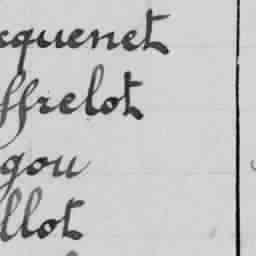 cquenet
ffrelot
gou
llot